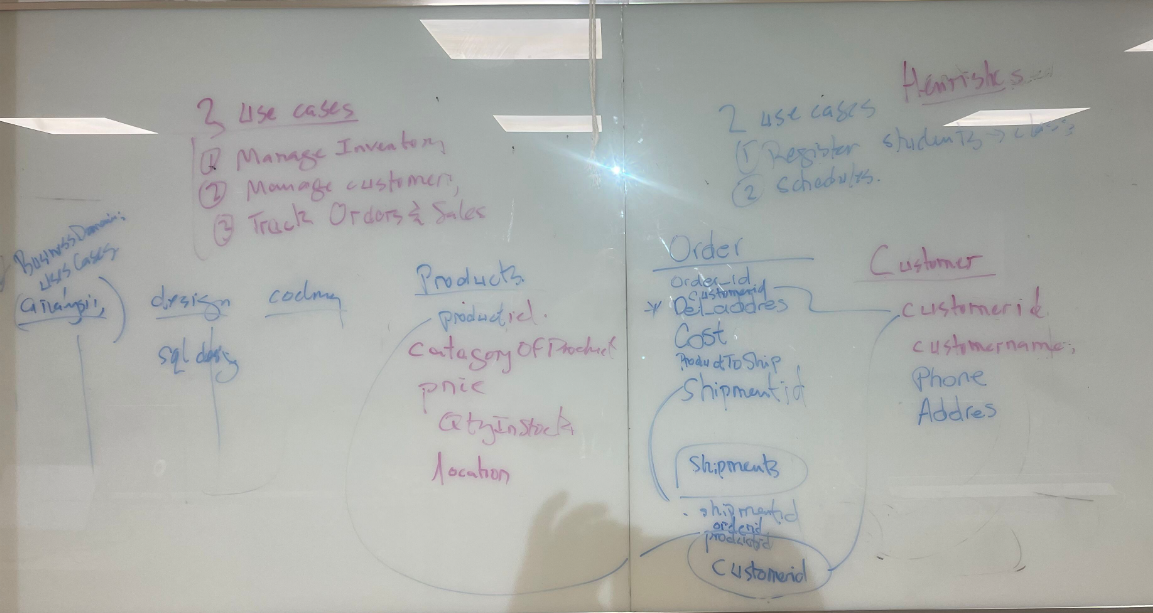 3 use cases
① Manage Inventory
② Manage customer,
③ Track Orders & Sales
Henrishs
2 use cases
① Register students → class
② Schedules.
Business Domain:
Uses Cases
design
coding
sql desig
Products
productid.
CatagoryOfProduct
price
QtyInStock
location
Order
order_id
Customerid
Del_addres
Cost
ProductToShip
Shipmentid
Shipments
shipmentid
orderid
productid
Customerid
Customer
customerid
customername,
Phone
Addres